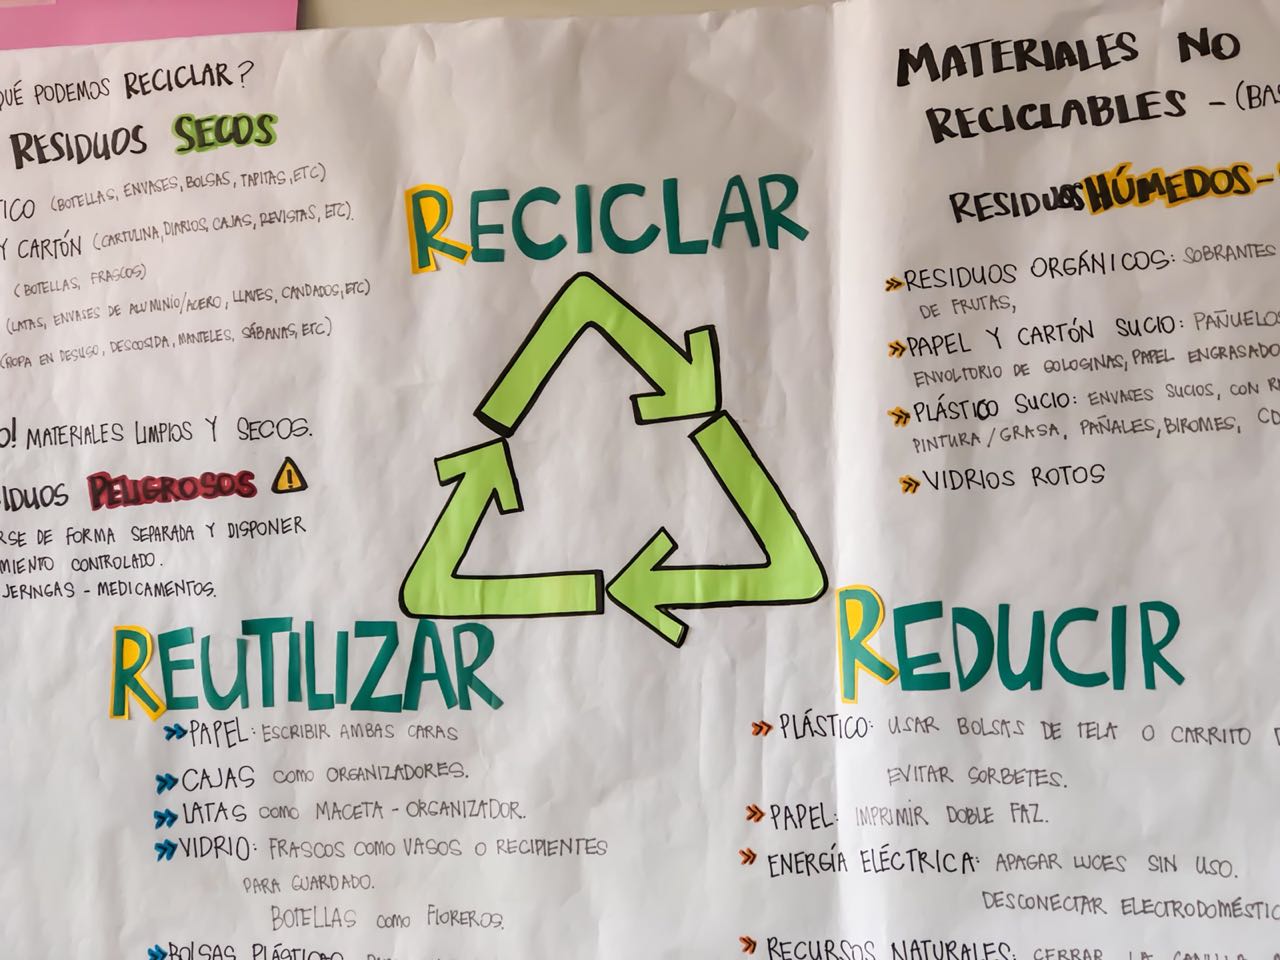 QUÉ PODEMOS RECICLAR?
RESIDUOS SECOS
(BOTELLAS, ENVASES, BOLSAS, TAPITAS, ETC)
Y CARTÓN (CARTULINA, DIARIOS, CAJAS, REVISTAS, ETC).
(BOTELLAS, FRASCOS)
(LATAS, ENVASES DE ALUMINIO/ACERO, LLAVES, CANDADOS, ETC)
(ROPA EN DESUSO, DESCOSIDA, MANTELES, SÁBANAS, ETC)
MATERIALES LIMPIOS Y SECOS.
PELIGROSOS
DE FORMA SEPARADA Y DISPONER
CONTROLADO.
JERINGAS - MEDICAMENTOS.
RECICLAR
MATERIALES NO
RECICLABLES -
RESIDUOS HÚMEDOS -
RESIDUOS ORGÁNICOS: SOBRANTES
DE FRUTAS,
PAPEL Y CARTÓN SUCIO: PAÑUELOS
ENVOLTORIO DE GOLOGINAS, PAPEL ENGRASADO
PLÁSTICO SUCIO: ENVASES SUCIOS, CON
PINTURA/GRASA, PAÑALES, BIROMES,
VIDRIOS ROTOS
REUTILIZAR
PAPEL: ESCRIBIR AMBAS CARAS
CAJAS COMO ORGANIZADORES.
LATAS COMO MACETA - ORGANIZADOR.
VIDRIO: FRASCOS COMO VASOS O RECIPIENTES
PARA GUARDADO.
BOTELLAS COMO FLOREROS.
BOLSAS PLÁSTICAS
REDUCIR
PLÁSTICO: USAR BOLSAS DE TELA O CARRITO
EVITAR SORBETES.
PAPEL: IMPRIMIR DOBLE FAZ.
ENERGÍA ELÉCTRICA: APAGAR LUCES SIN USO.
DESCONECTAR
RECURSOS NATURALES: CERRAR LA CANILLA